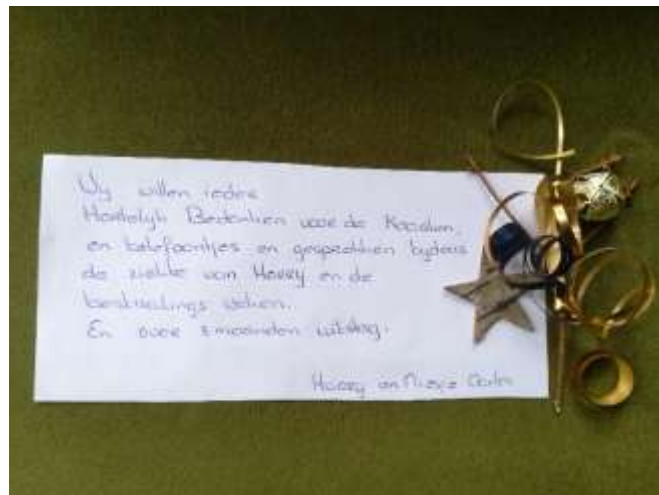 Wij willen ieder
Hartelijk Bedanken voor de Kaarten,
en telefoontjes en gesprekken tijdens
de ziekte van Harry en de
bestralings weken.
En over 3 maanden uitslag.
Harry en